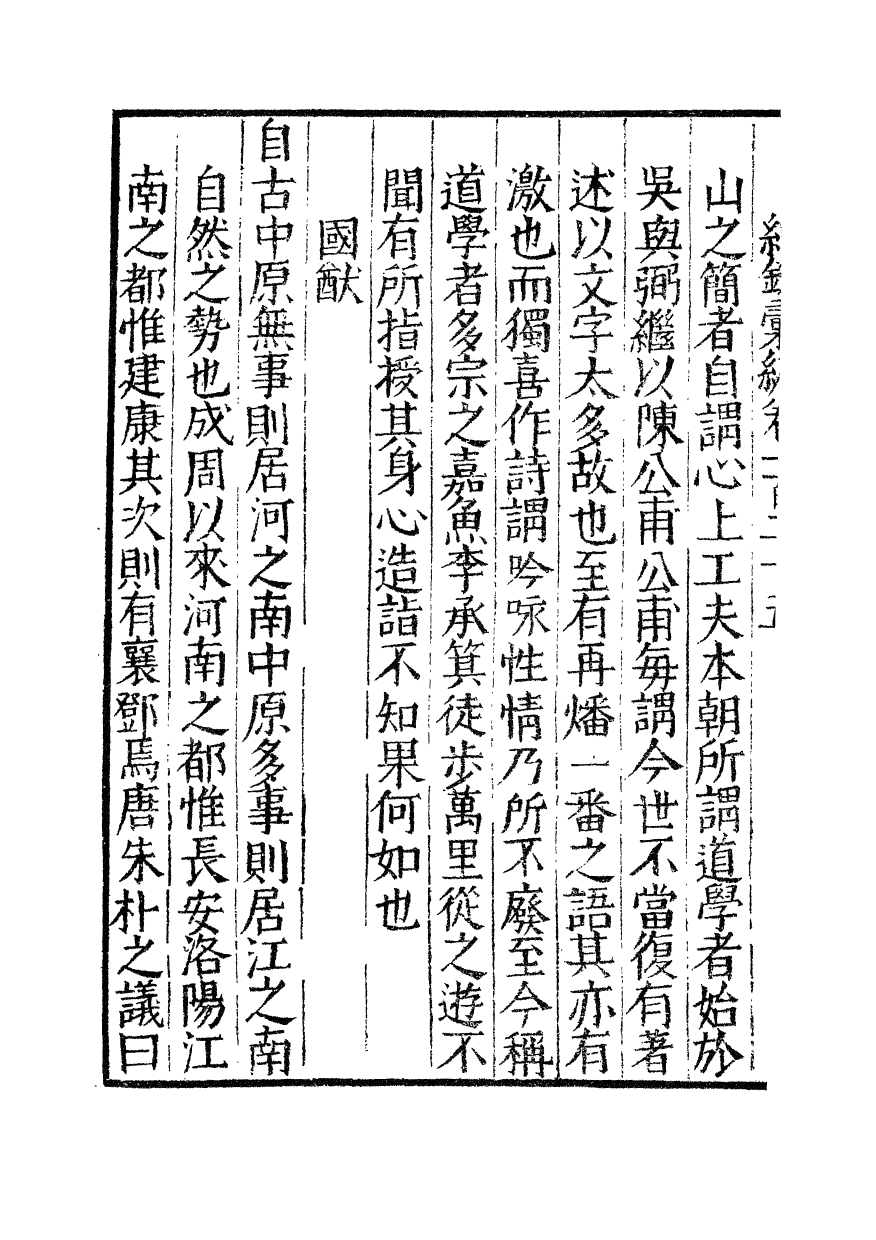 紀錄彙編卷一百二十五
山之簡者自謂心上工夫本朝所謂道學者始於
吳與弼繼以陳公甫公甫每謂今世不當復有著
述以文字太多故也至有再燔一番之語其亦有
激也而獨喜作詩謂吟咏性情乃所不廢至今稱
道學者多宗之嘉魚李承箕徒步萬里從之遊不
聞有所指授其身心造詣不知果何如也
國猷
自古中原無事則居河之南中原多事則居江之南
自然之勢也成周以來河南之都惟長安洛陽江
南之都惟建康其次則有襄鄧焉唐朱朴之議曰